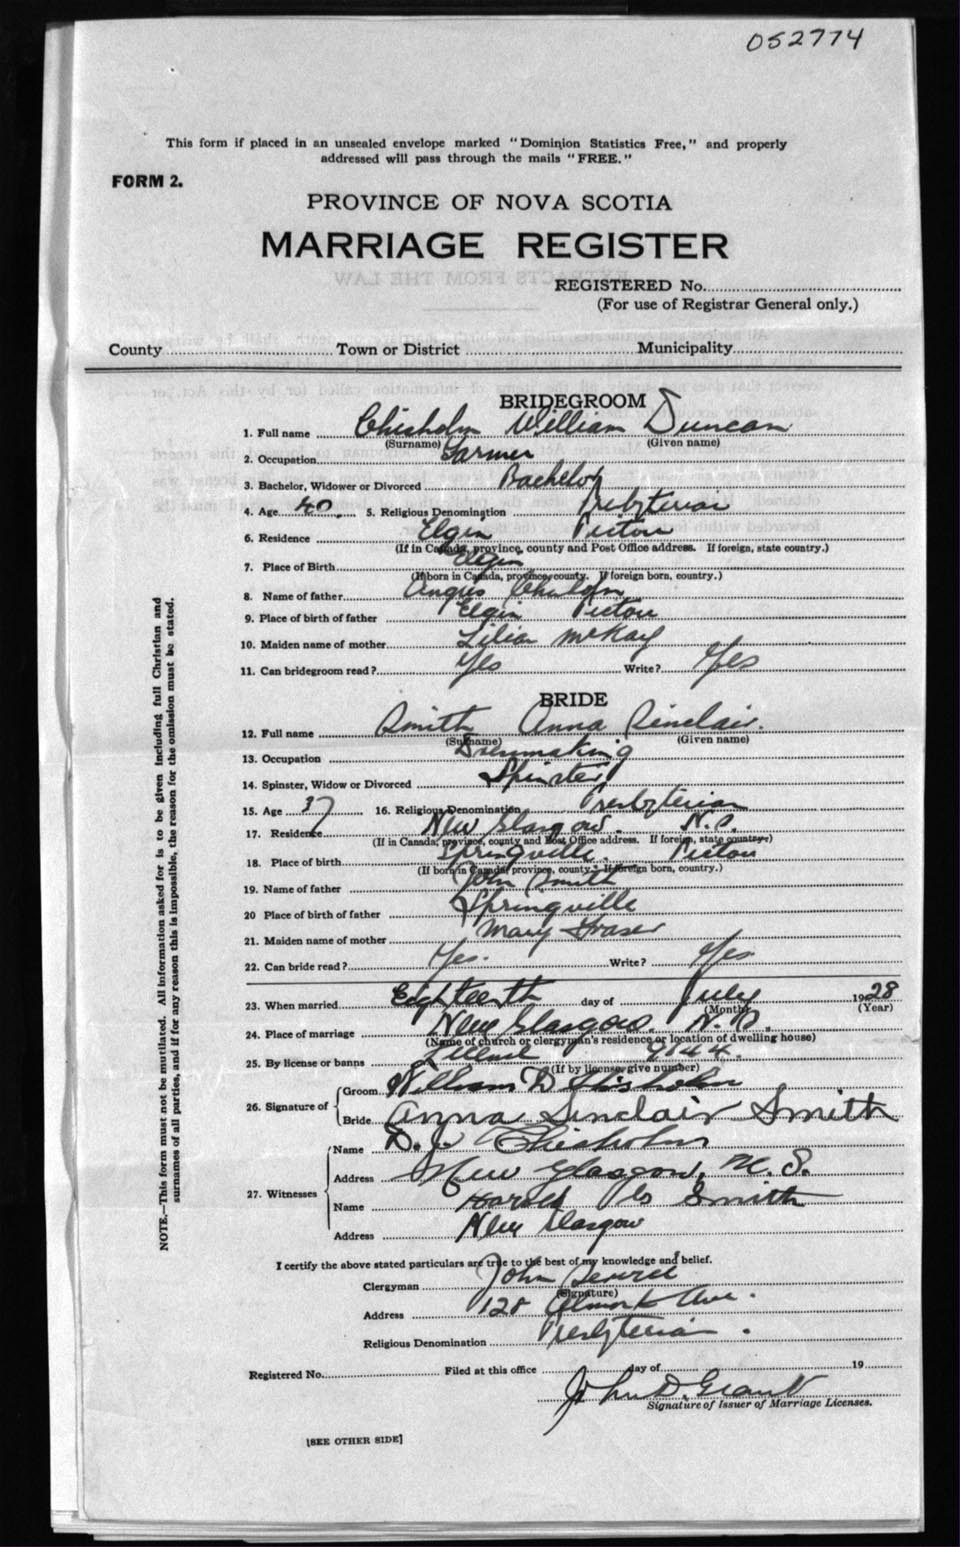 052774
This form if placed in an unsealed envelope marked "Dominion Statistics Free," and properly
addressed will pass through the mails "FREE."
FORM 2.
PROVINCE OF NOVA SCOTIA
MARRIAGE REGISTER
REGISTERED No.
(For use of Registrar General only.)
County Town or District Municipality
BRIDEGROOM
1. Full name Chisholm William Duncan
(Surname) (Given name)
2. Occupation Farmer
3. Bachelor, Widower or Divorced Bachelor
4. Age 40 5. Religious Denomination Presbyterian
6. Residence Elgin Pictou
(If in Canada, province, county and Post Office address. If foreign, state country.)
7. Place of Birth Elgin
(If born in Canada, province, county. If foreign born, country.)
8. Name of father Angus Chisholm
9. Place of birth of father Elgin Pictou
10. Maiden name of mother Lilian McKay
11. Can bridegroom read? Yes Write? Yes
BRIDE
12. Full name Smith Anna Sinclair.
(Surname) (Given name)
13. Occupation Dressmaking
14. Spinster, Widow or Divorced Spinster
15. Age 37 16. Religious Denomination Presbyterian
17. Residence New Glasgow. N.S.
(If in Canada, province, county and Post Office address. If foreign, state country.)
18. Place of birth Springville. Pictou
(If born in Canada, province, county. If foreign born, country.)
19. Name of father John Smith
20 Place of birth of father Springville
21. Maiden name of mother Mary Fraser
22. Can bride read? Yes. Write? Yes
23. When married Eighteenth day of July 1928
(Month) (Year)
24. Place of marriage New Glasgow. N.S.
(Name of church or clergyman's residence or location of dwelling house)
25. By license or banns License 9144.
(If by license, give number)
26. Signature of
Groom William D Chisholm
Bride Anna Sinclair Smith
27. Witnesses
Name D. J. Chisholm
Address New Glasgow, N.S.
Name Harold Smith
Address New Glasgow
I certify the above stated particulars are true to the best of my knowledge and belief.
Clergyman John
(Signature)
Address 128 Ave.
Religious Denomination Presbyterian.
Registered No. Filed at this office day of 19
John D. Grant
Signature of Issuer of Marriage Licenses.
[SEE OTHER SIDE]
NOTE.—This form must not be mutilated. All information asked for is to be given including full Christian and
surnames of all parties, and if for any reason this is impossible, the reason for the omission must be stated.